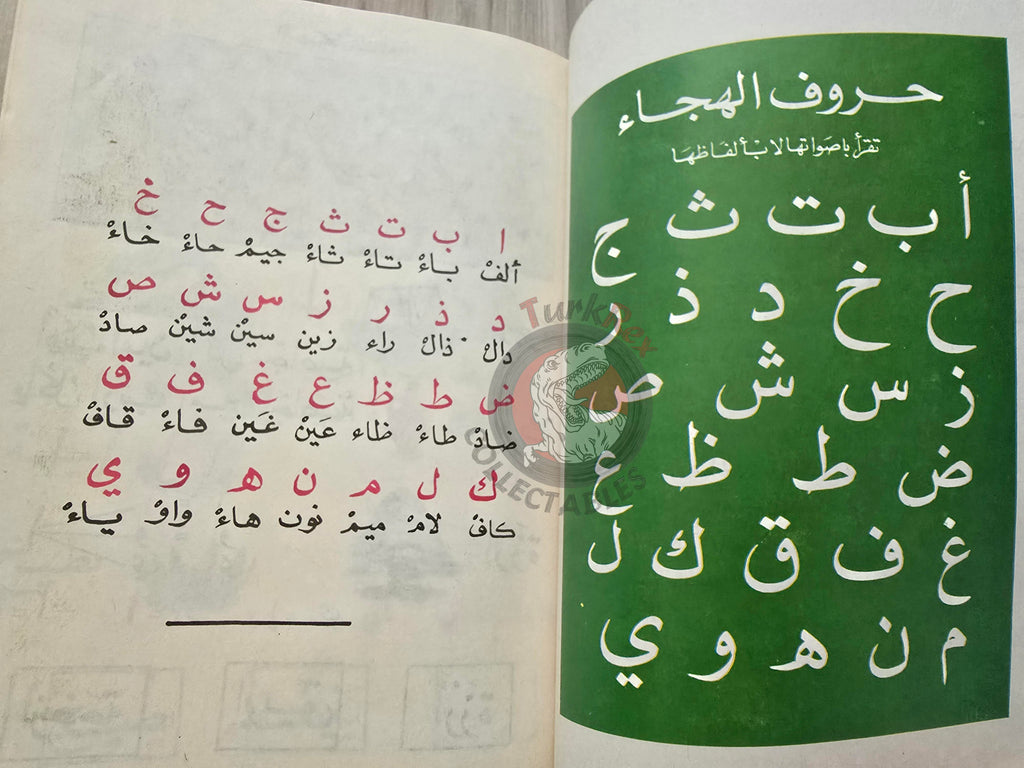 حروف الهجاء
تقرأ بأصواتها لا بألفاظها
أ ب ت ث ج
ح خ د ذ ر
ز س ش ص
ض ط ظ ع
غ ف ق ك ل
م ن ه و ي
ا ب ت ث ج ح خ
ألفْ باءْ تاءْ ثاءْ جيمْ حاءْ خاءْ
د ذ ر ز س ش ص
دالْ ذالْ راء زين سيْن شيْن صادْ
ض ط ظ ع غ ف ق
ضادْ طاءْ ظاء عَيْن غَين فاءْ قافْ
ك ل م ن ه و ي
كافْ لامْ ميمْ نون هاءْ واوْ ياءْ
TurkRex
COLLECTABLES